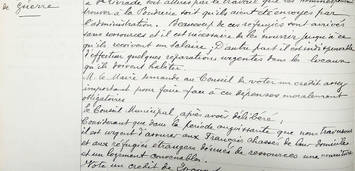 de Guerre
trouver à la Poudrerie soit qu'ils aient été envoyés par
l'administration. Beaucoup de ces réfugiés sont arrivés
sans ressources et il est nécessaire de les nourrir jusqu'à ce
qu'ils reçoivent un salaire. D'autre part il est indispensable
d'effectuer quelques réparations urgentes dans les locaux
qu'ils doivent habiter.
M. le Maire demande au Conseil de voter un crédit assez
important pour faire face à ces dépenses moralement
obligatoires.
Le Conseil Municipal après avoir délibéré;
Considérant que dans la période angoissante que nous traversons
il est urgent d'assurer aux Français chassés de leur domicile
et aux réfugiés étrangers dénués de ressources une nourriture
et un logement convenables.
Vote un crédit de